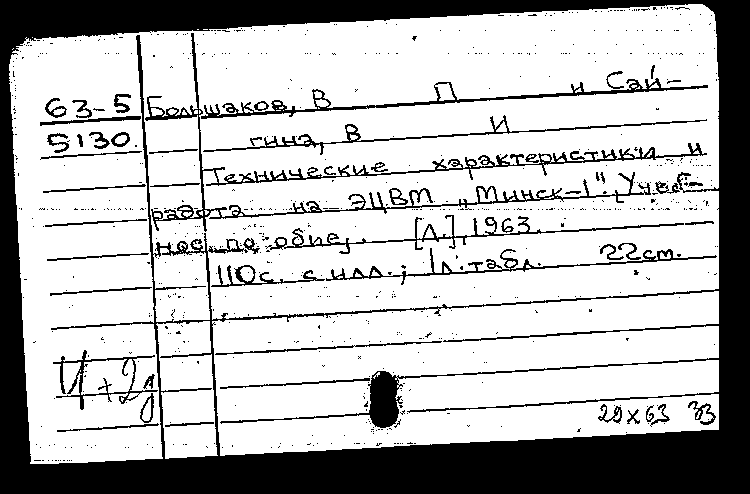 63-5 Большаков, В П и Сай-
5130. гина, В И
Технические характеристики и
работа на ЭЦВМ „Минск-1". Учеб-
ное пособие. [Л.], 1963.
110с. с илл.; 1л. табл. 22см.
Ч + 2д
29 X 63 33